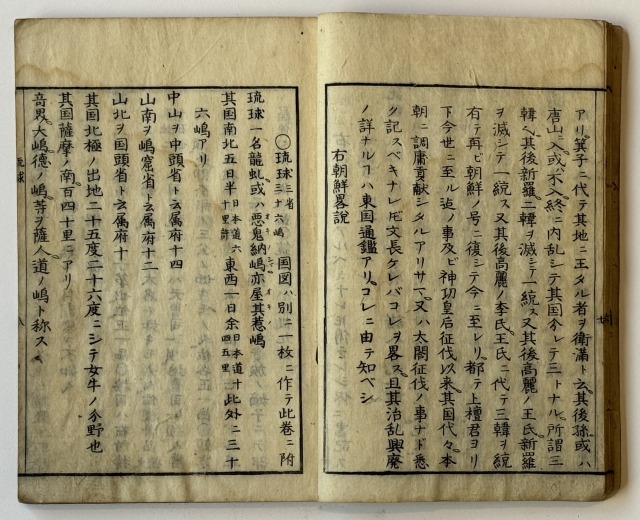 アリ箕子ニ代テ其地ニ王タル者ヲ衛滿ト云其後孫或ハ
唐山ニ入或ハ不入終ニ内乱シテ其国分レテ三トナル所謂三
韓ヘ其後新羅二韓ヲ滅シテ一統ス又其後高麗ノ王氏新羅
ヲ滅シテ一統ス又其後高麗ノ李氏王氏ニ代テ三韓ヲ統
有テ再ビ朝鮮ノ号ニ復シテ今ニ至レリ都テ上檀君ヨリ
下今世ニ至ル迠ノ事及ビ神功皇后征伐以来其国代々本
朝ニ調庸貢献シタルアリサマ又ハ太閤征伐ノ事ナド悉
ク記スベキナレ𪜈文長ケレバコレヲ畧ス且其治乱興廃
ノ詳ナルヿハ東国通鑑アリコレニ由テ知ベシ
右朝鮮畧説
○琉球三省三十六嶋 国図ハ別ニ一枚ニ作テ此巻ニ附
琉球一名龍虬或ハ悪鬼納嶋亦屋其惹嶋
其国南北五日半日本道六十里許東西一日余日本道十四五里此外ニ三十
六嶋アリ
中山ヲ中頭省ト云属府十四
山南ヲ嶋窟省ト云属府十二
山北ヲ国頭省ト云属府十
其国北極ノ出地二十五度二十六度ニシテ女牛ノ分野也
其国薩摩ノ南百四十里ニアリ
音界大嶋徳ノ嶋等ヲ薩人道ノ嶋ト称ス
琉球
八